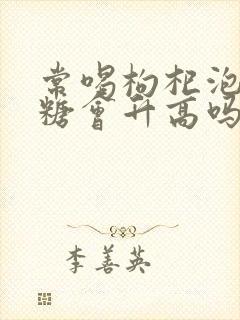 常喝枸杞泡
糖会升高吗
李善英